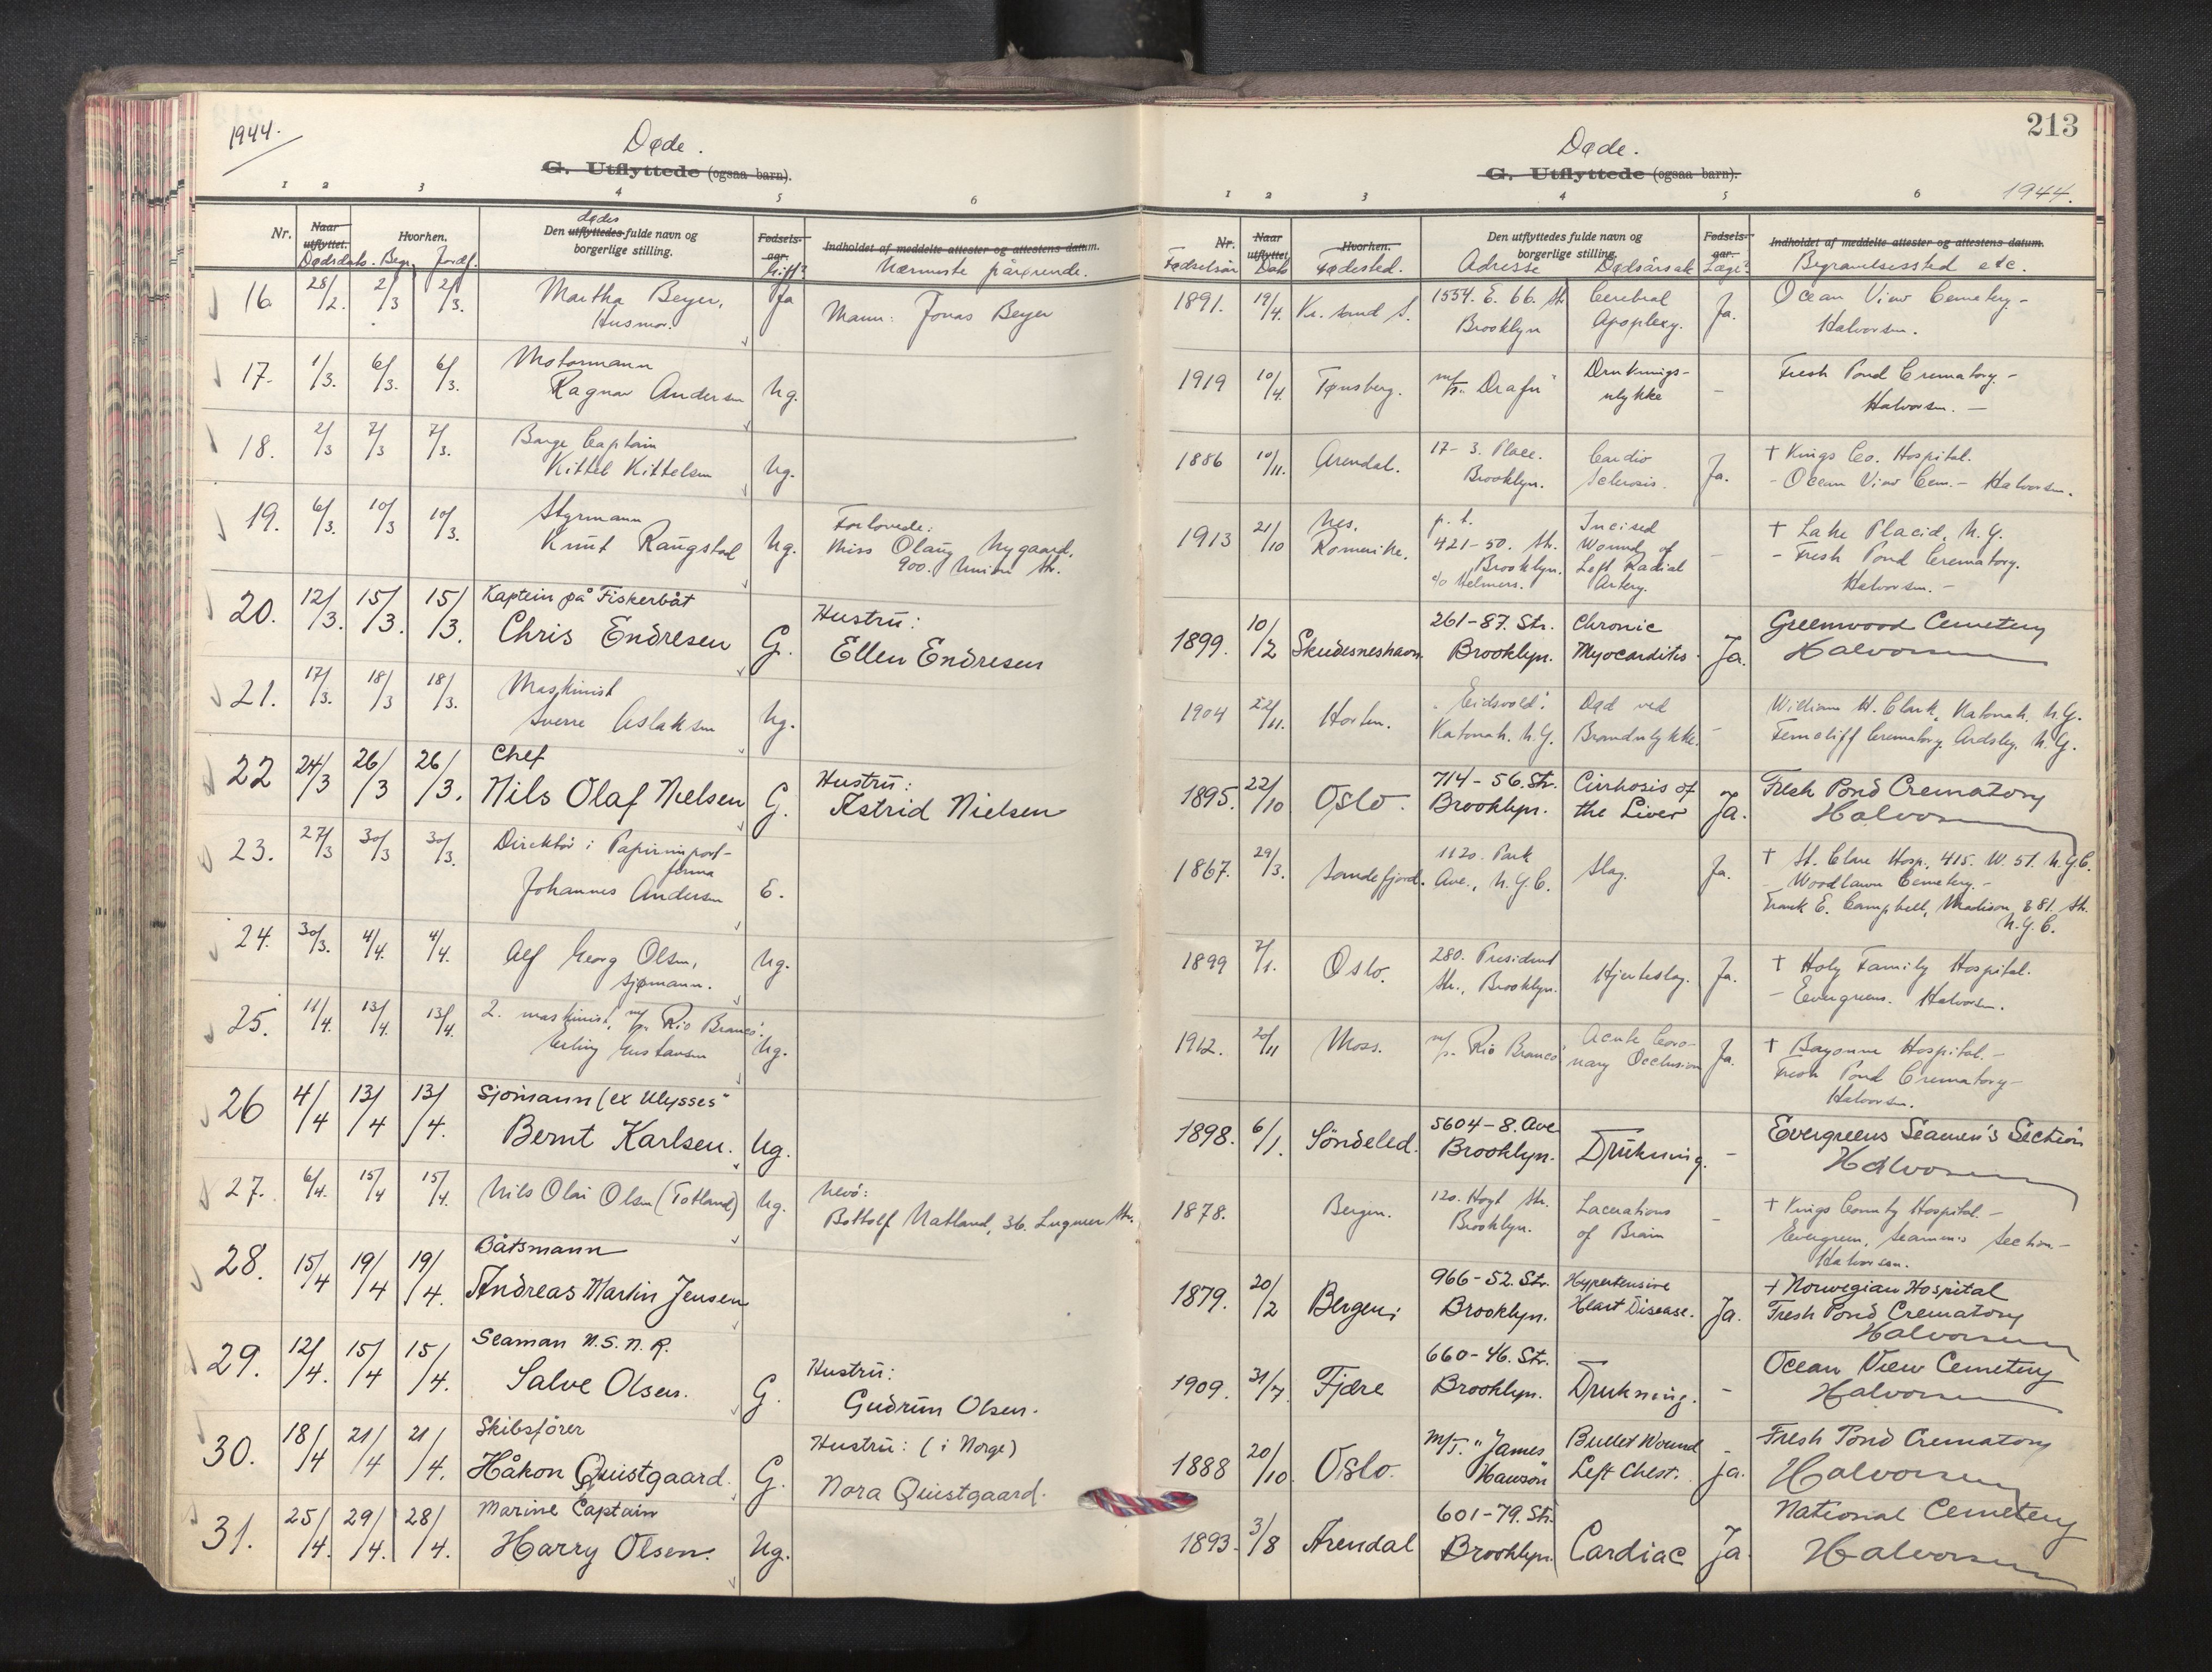 1944.
Døde.
G. Utflyttede (ogsaa barn).
1 2 3 4 5 6
Nr. Naar utflyttet. Hvorhen. Den utflyttedes fulde navn og borgerlige stilling. Fødsels-aar. Indholdet af meddelte attester og attestens datum.
Dødsdato. Begr. Jordf. dødes Gift? Nærmeste pårørende.
16 28/2. 2/3 2/3. Martha Beyer, Ja Mann: Jonas Beyer
Husmor.
17. 1/3. 6/3. 6/3. Motormann
Ragnar Andersen Ug.
18. 2/3 7/3 7/3. Barge Captain
Kittel Kittelsen Ug.
19. 6/3. 10/3 10/3. Styrmann Forlovede:
Knut Raugstad Ug. Miss Olaug Nygaard,
900. Union Str.
20. 12/3. 15/3. 15/3. Kaptein på Fiskerbåt Hustru:
Chris Endresen G. Ellen Endresen
21. 17/3. 18/3 18/3. Maskinist
Sverre Aslaksen Ug.
22 24/3 26/3 26/3. Chef Hustru:
Nils Olaf Nielsen G. Astrid Nielsen
23. 27/3 30/3 30/3. Direktør i Papirimport-
firma
Johannes Andersen E.
24. 30/3. 4/4. 4/4. Alf Georg Olsen, Ug.
sjømann.
25. 11/4. 13/4. 13/4. 2. maskinist, m/s. Rio Branco.
Erling Gustavsen Ug.
26 4/4 13/4 13/4. Sjömann (ex Ulysses"
Bernt Karlsen. Ug.
27. 6/4. 15/4 15/4. Nils Olai Olsen (Totland) Ug. Nevø:
Bottolf Natland, 36. Luquer Str.
28. 15/4 19/4 19/4. Båtsmann
Andreas Martin Jensen
29. 12/4. 15/4 15/4. Seaman N.S.N.R. Hustru:
Salve Olsen. G. Gudrun Olsen.
30. 18/4 21/4 21/4. Skibsfører Hustru: (i Norge)
Håkon Quistgaard. G. Nora Quistgaard.
31. 25/4. 29/4. 28/4. Marine Captain
Harry Olsen. Ug.
213
Døde.
G. Utflyttede (ogsaa barn).
1944.
1 2 3 4 5 6
Nr. Naar utflyttet. Hvorhen. Den utflyttedes fulde navn og borgerlige stilling. Fødsels-aar. Indholdet af meddelte attester og attestens datum.
Fødselsår Dato Fødested. Adresse Dødsårsak Læge? Begravelsessted etc.
1891. 19/4. Kr. sand S. 1554. E. 66. St. Cerebral Ja. Ocean View Cemetery -
Brooklyn Apoplexy. Halvorsen.
1919 10/4. Tønsberg. m/t. "Drafn" Druknings- - Fresh Pond Crematory. -
ulykke Halvorsen. -
1886 10/11. Arendal. 17- 3. Place. Cardio Ja. + Kings Co. Hospital.
Brooklyn. Sclerosis. - Ocean View Cem. - Halvorsen.
1913 21/10 Nes. p. t. Incised - + Lake Placid, N.Y.
Romerike. 421-50. Str. Wound of - Fresh Pond Crematory.
Brooklyn. Left Radial Halvorsen. -
c/o Helmers. Artery.
1899. 10/2 Skudesneshavn. 261-87. Str. Chronic Ja. Greenwood Cemetery
Brooklyn. Myocarditis. Halvorsen
1904 22/11. Horten. "Eidsvold". Død ved - William H. Clark, Katonah, N.Y.
Katonah. N.Y. Brandulykke. Ferncliff Crematory, Ardsley, N.Y.
1895. 22/10 Oslo. 714-56. Str. Cirrhosis of Ja. Fresh Pond Crematory
Brooklyn. the Liver Halvorsen
1867. 29/3. Sandefjord. 1120. Park Slag. Ja. + St. Clare Hosp., 415. W. 51. N.Y.C.
Ave., N.Y.C. - Woodlawn Cemetery. -
Frank E. Campbell, Madison & 81. Str.
N.Y.C.
1899 7/1. Oslo. 280. President Hjerteslag. Ja. + Holy Family Hospital.
Str., Brooklyn. - Evergreens. Halvorsen.
1912. 20/11 Moss. m/s. Rio Branco" Acute Coro- Ja. + Bayonne Hospital. -
nary Occlusion Fresh Pond Crematory -
Halvorsen.
1898. 6/1. Söndeled. 5604-8. Ave Drukning. - Evergreens Seamen's Section
Brooklyn. Halvorsen
1878. Bergen. 120. Hoyt Str. Lacerations - + Kings County Hospital. -
Brooklyn. of Brain Evergreen, Seamen's Section -
Halvorsen.
1879. 20/2 Bergen. 966-52. Str. Hypertensive Ja. + Norwegian Hospital
Brooklyn. Heart Disease. Fresh Pond Crematory
Halvorsen
1909. 31/7 Fjære 660-46. Str. Drukning. - Ocean View Cemetery
Brooklyn. Halvorsen
1888 20/10. Oslo. M/T. "James Bullet Wound Ja. Fresh Pond Crematory
Hawson Left Chest. Halvorsen
1893. 3/8 Arendal 601-79. Str. Cardiac Ja. National Cemetery
Brooklyn. Halvorsen